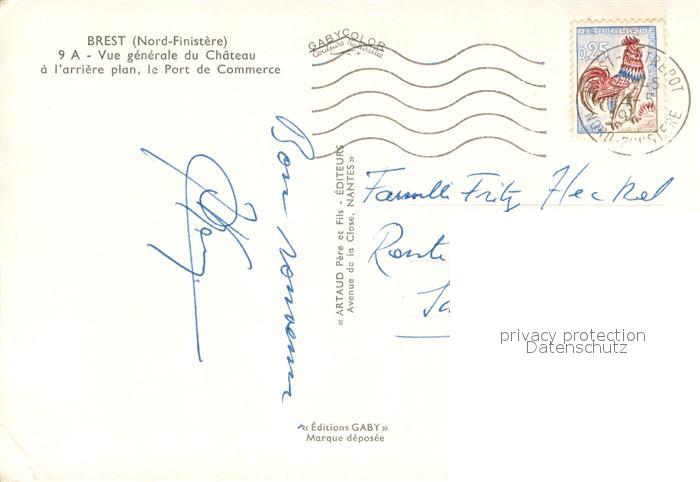 BREST (Nord-Finistère)
9 A - Vue générale du Château
à l'arrière plan, le Port de Commerce
GABYCOLOR
Couleurs Naturelles
REPUBLIQUE
0,25
NORD-FINISTERE
Bon souvenir
« ARTAUD Père et Fils - ÉDITEURS
Avenue de la Close, NANTES »
Famille Fritz Heckel
Route
privacy protection
Datenschutz
« Éditions GABY »
Marque déposée